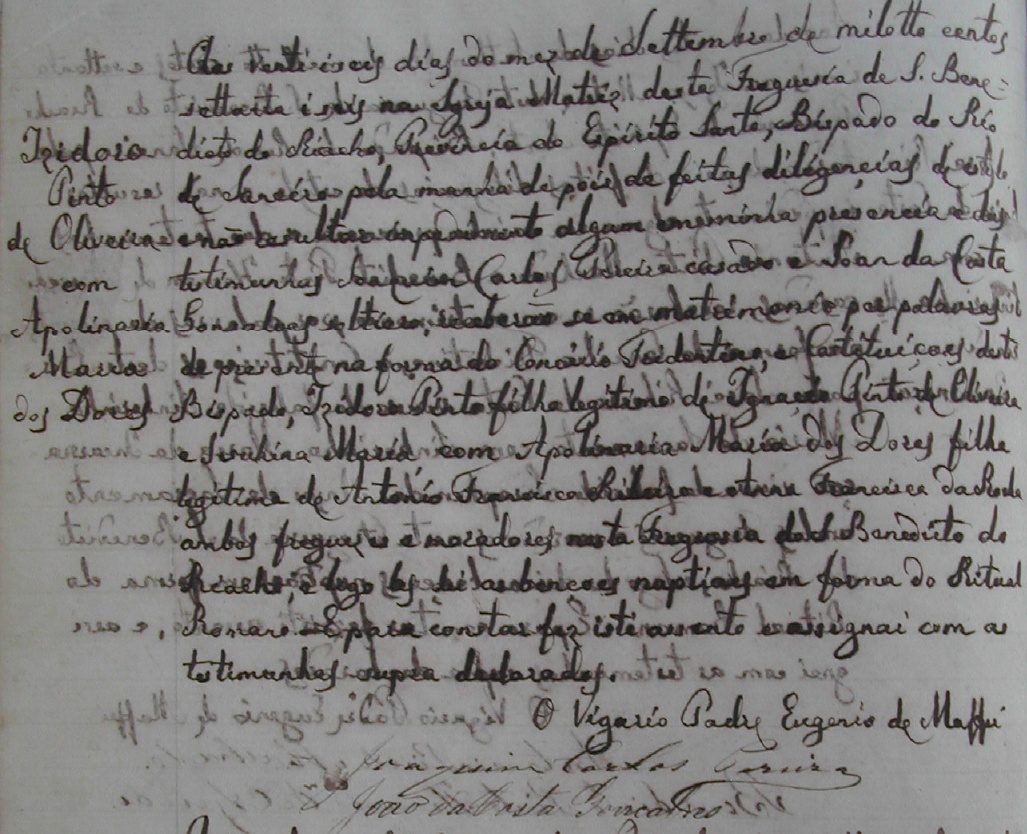 Aos Vinti i seis dias do mez de Settembro de mil otto centos
settenta i seis na Igreja Matriz desta Freguesia de S. Bene=
Izidoro dicto do Riacho, Provincia do Espirito Santo, Bispado do Rio
Pinto de Janeiro pela manhã depois de feitas diligencias de estilo
de Oliveira e não resultou impedimento algum em minha presencia e das
com testimunhas Joaquim Carlos Pereira casado e Joan da Costa
Apolinaria Gonsalves solteiro, receberão se em matrimonio por palavras
Maria de presente na forma do Concilio Tridentino, e Constituiçoes deste
dos Dores Bispado, Izidoro Pinto filho legitimo de Ignacio Pinto de Oliveira
e Maria com Apolinaria Maria dos Dores filha
legitima de Antonio Francisco Francisca da
ambos freguezes e moradores nesta Freguesia de S. Benedicto do
Riacho, e logo les dei as bençoes nupitiaes em forma do Ritual
Romano. E para constar fez iste assento e assignai com as
testimunhas supra declaradas.
O Vigario Padre Eugenio de Maffei
Joaquim Carlos Pereira
João da Costa Goncalves